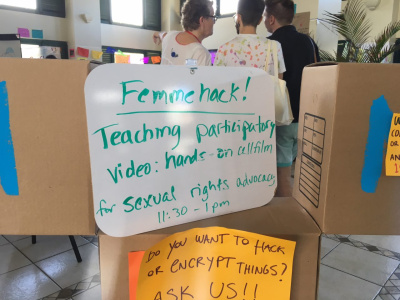 Femmehack!
Teaching participatory
video: hands-on cellfilm
for sexual rights advocacy
11:30 - 1pm
DO YOU WANT TO HACK
OR ENCRYPT THINGS?
ASK US!!